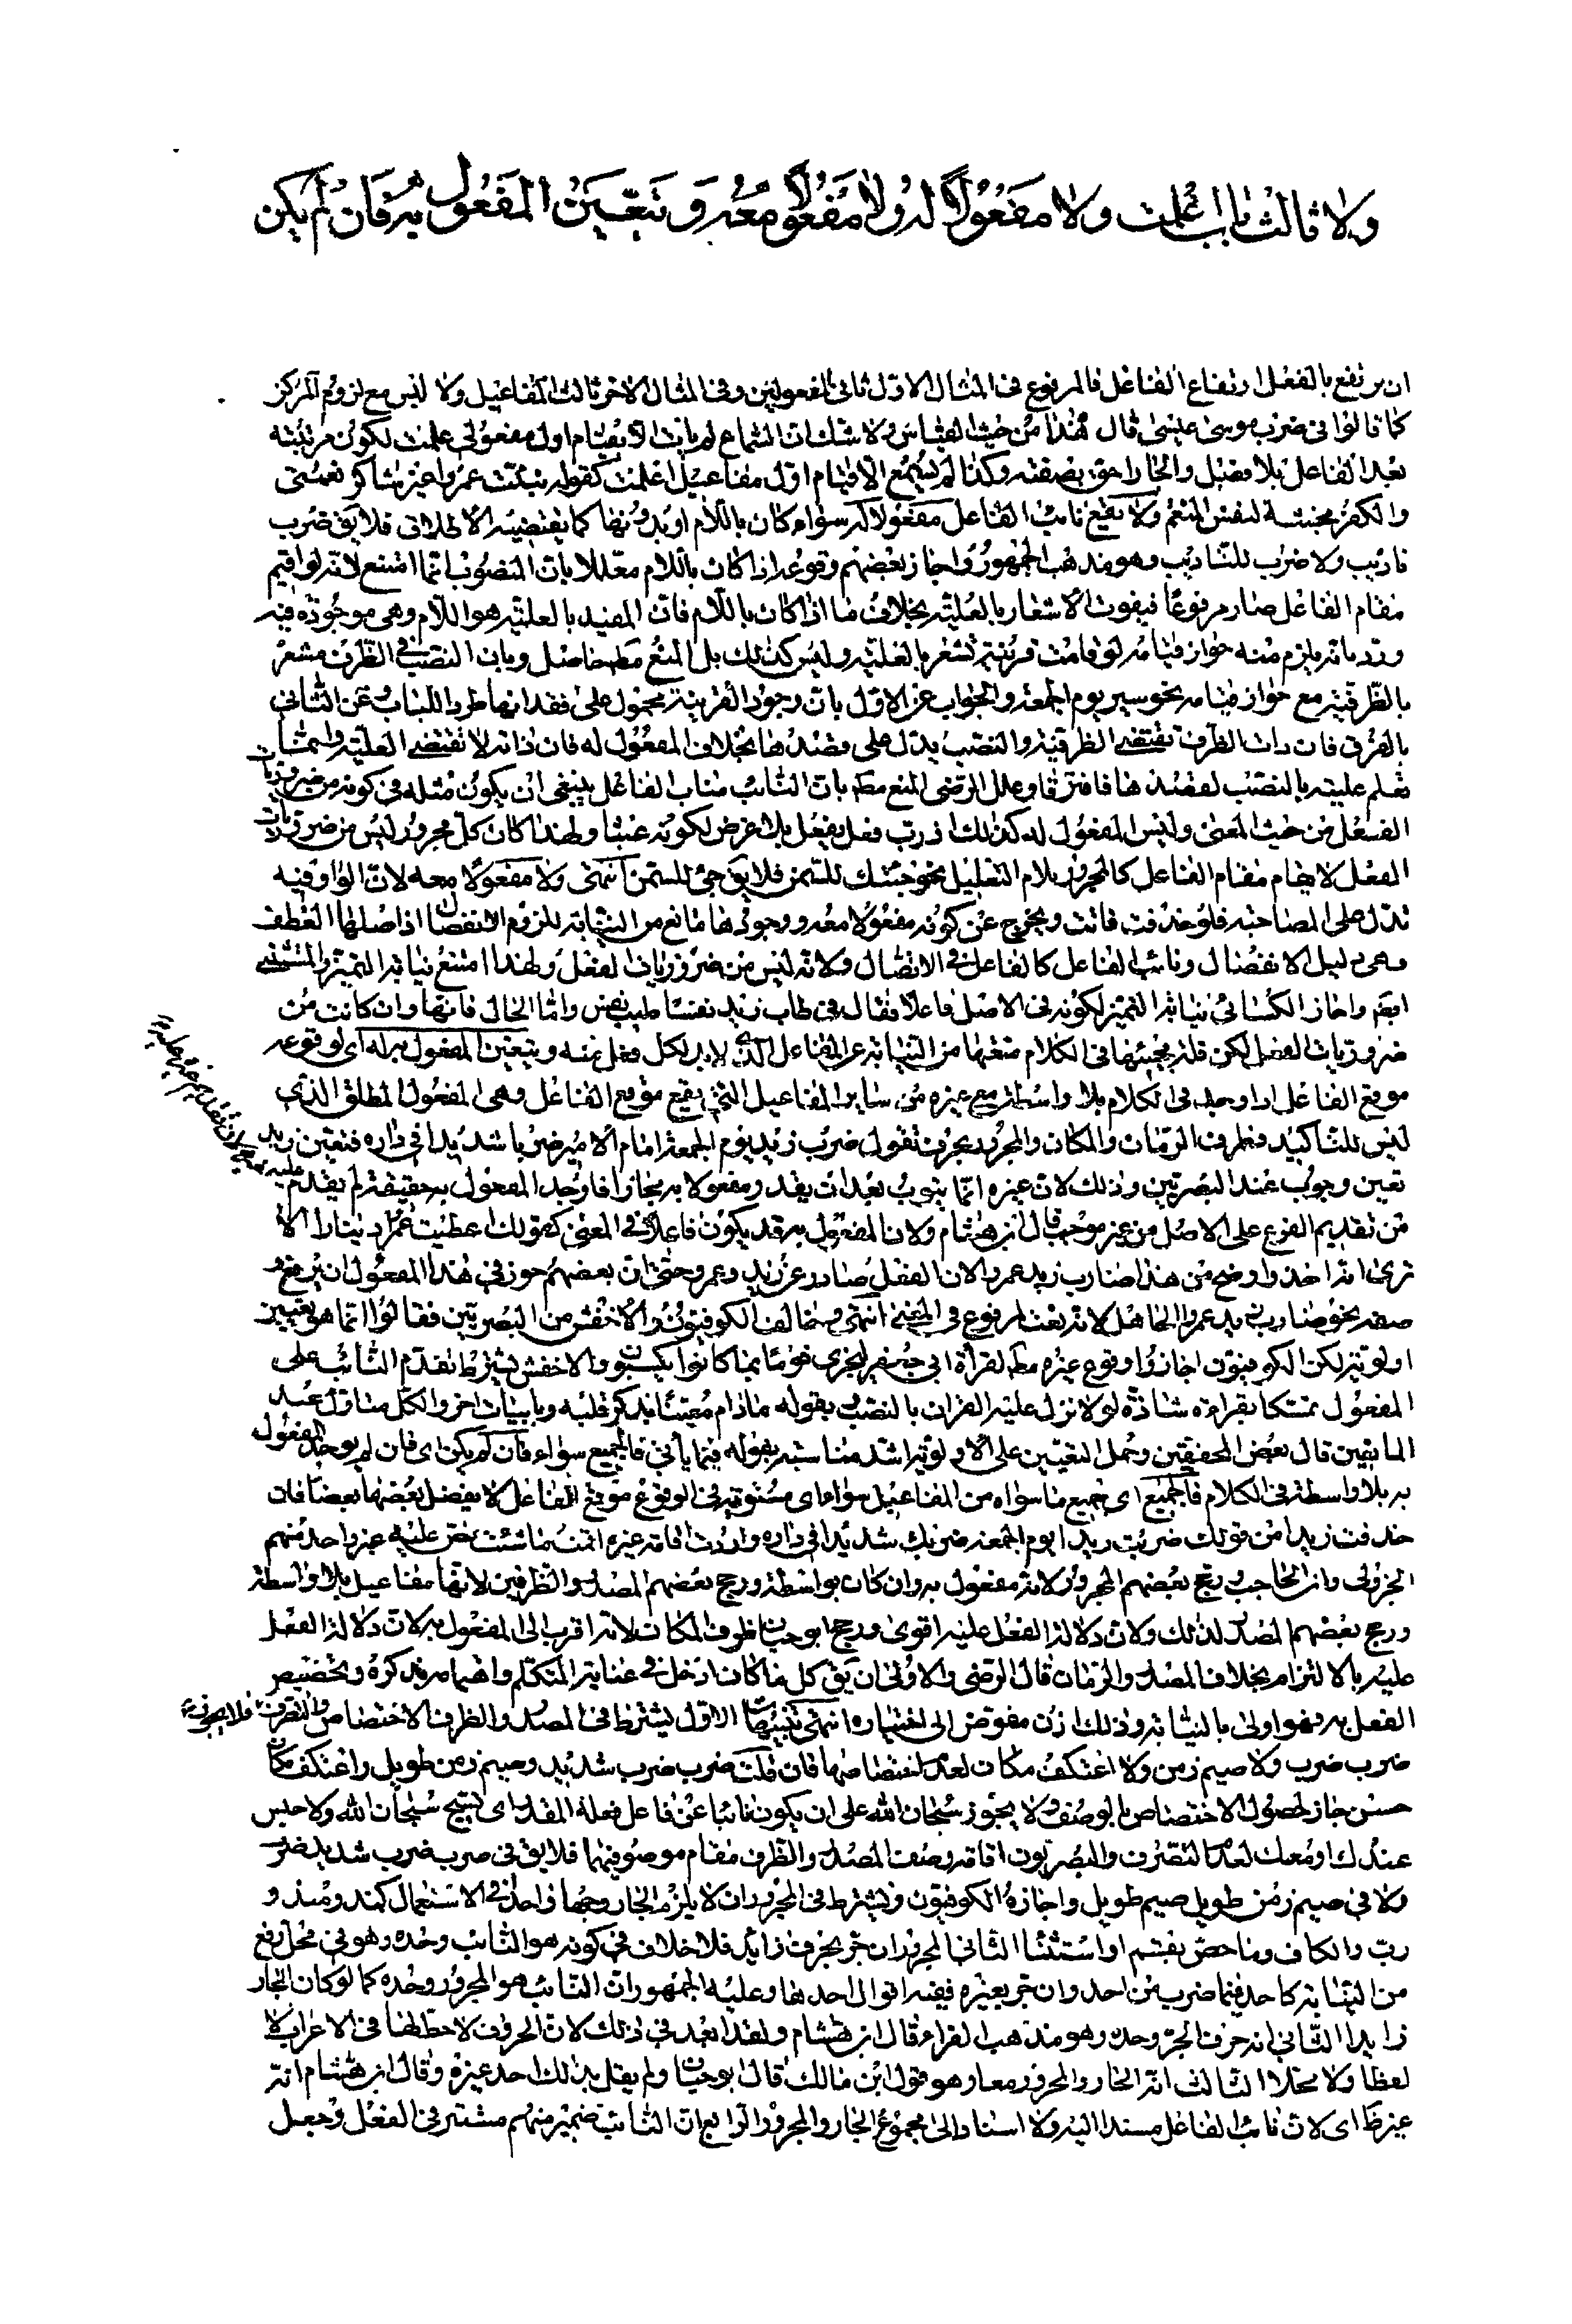 ولا ثالث باب اعلمت ولا مفعولا له ولا مفعولا معه ويتعين المفعول به فان لم يكن
ان يرتفع بالفعل ارتفاع الفاعل فالمرفوع فى المثال الاول ثانى المفعولين وفى المثال الاخر ثالث المفاعيل ولا لبس مع لزوم المركز
كما قالوا فى ضرب موسى عيسى قال هذا من حيث القياس ولا شك ان السماع لم يات الا بقيام اول مفعولى علمت لكون مرتبته
بعد الفاعل بلا فصل والجار احق بصقبه وكذا لم يسمع الا قيام اول مفاعيل اعلمت كقوله نبئت عمروا غير شاكر نعمتى
والكفر مخبثة لنفس المنعم ولا يقع نائب الفاعل مفعولا له سواء كان باللام او بدونها كما يقتضيه الاطلاق فلا يق ضرب
تاديب ولا ضرب للتاديب وهو مذهب الجمهور واجاز بعضهم وقوعه اذا كان باللام معللا بان المنصوب انما امتنع لانه لو اقيم
مقام الفاعل صار مرفوعا فيفوت الاشعار بالعلية بخلاف ما اذا كان باللام فان المفيد بالعلية هو اللام وهى موجودة فيه
ورد بانه يلزم منه جواز قيامه لو قامت قرينة تشعر بالعلية وليس كذلك بل المنع مط حاصل وبان النصب فى الظرف مشعر
بالظرفية مع جواز قيامه نحو سير يوم الجمعة والجواب عن الاول بان وجود القرينة محمول على فقدانها طردا للباب وعن الثانى
بالفرق فان ذات الظرف تقتضى الظرفية والنصب يدل على قصدها بخلاف المفعول له فان ذاته لا تقتضى العلية وانما
تعلم عليته بالنصب لقصدها فافترقا وعلل الرضى المنع مط بان النائب مناب الفاعل ينبغى ان يكون مثله فى كونه من ضروريات
الفعل من حيث المعنى وليس المفعول له كذلك اذ رب فعل يفعل بلا غرض لكونه عبثا ولهذا كان كل مجرور ليس من ضروريات
الفعل لا يقام مقام الفاعل كالمجرور بلام التعليل نحو جئتك للسمن فلا يق جئ للسمن انتهى ولا مفعولا معه لان الواو فيه
تدل على المصاحبة فلو حذفت فاتت ويخرج عن كونه مفعولا معه ووجودها مانع من النيابة للزوم الانفصال اذ اصلها العطف
وهى دليل الانفصال ونائب الفاعل كالفاعل فى الاتصال ولانه ليس من ضروريات الفعل ولهذا امتنع نيابة التميز والمستثنى
ايضا واجاز الكسائى نيابة التميز لكونه فى الاصل فاعلا فقال فى طاب زيد نفسا طيب نفس واما الحال فانها وان كانت من
ضروريات الفعل لكن قلة مجيئها فى الكلام منعها من النيابة عن الفاعل الذى لا بد لكل فعل منه ويتعين المفعول به له اى لوقوعه
موقع الفاعل اذا وجد فى الكلام بلا واسطة مع غيره من ساير المفاعيل التى يقع موقع الفاعل وهى المفعول المطلق الذى
ليس للتاكيد وظرف الزمان والمكان والمجرور بحرف تقول ضرب زيد يوم الجمعة امام الامير ضربا شديدا فى داره فتعين زيد
تعين وجوب عند البصريين وذلك لان غيره انما ينوب بعد ان يقدر مفعولا به مجازا فاذا وجد المفعول به حقيقة لم يقدم عليه
من تقديم الفرع على الاصل من غير موجب قال ابن هشام ولان المفعول به قد يكون فاعلا فى المعنى كقولك اعطيت عمرا دينارا الا
ترى انه اخذ واوضح من هذا ضارب زيد عمروا لان الفعل صادر عن زيد وعمرو حتى ان بعضهم جوز فى هذا المفعول ان يرفع
صفته نحو ضارب زيد عمروا الجاهل لانه نعت لمرفوع فى المعنى انتهى وخالف الكوفيون والاخفش من البصريين فقالوا انما هو تعيين
اولوية لكن الكوفيون اجازوا وقوع غيره مط لقراءة ابى جعفر ليجزى قوما بما كانوا يكسبون والاخفش يشترط تقدم النائب على
المفعول متمسكا بقراءة شاذة لولا نزل عليه القران بالنصب وبقوله مادام معنيا بذكر قلبه وبابيات اخر والكل متاول عند
المانعين قال بعض المحققين وحمل التعيين على الاولوية اشد مناسبة بقوله فيما يأتى فالجميع سواء فان لم يكن اى فان لم يوجد المفعول
به بلا واسطة فى الكلام فالجميع اى جميع ما سواه من المفاعيل سواء اى مستوية فى الوقوع موقع الفاعل لا يفضل بعضها بعضا فان
حذفت زيدا من قولك ضربت زيدا يوم الجمعة ضربا شديدا فى داره واردت اقامة غيره اقمت ما شئت نص عليه غير واحد منهم
الجزولى وابن الحاجب ورجح بعضهم المجرور لانه مفعول به وان كان بواسطة ورجح بعضهم المصدر والظرفين لانها مفاعيل بلا واسطة
ورجح بعضهم المصدر لذلك ولان دلالة الفعل عليه اقوى ورجح ابو حيان ظرف المكان لانه اقرب الى المفعول به لان دلالة الفعل
عليه بالالتزام بخلاف المصدر والزمان قال الرضى والاولى ان يق كل ما كان ادخل فى عناية المتكلم واهتمامه بذكره وتخصيص
الفعل به فهو اولى بالنيابة وذلك اذن مفوض الى اختياره انتهى تنبيهات الاول يشترط فى المصدر والظرف الاختصاص والتصرف فلا يجوز
ضرب ضرب ولا صيم زمن ولا اعتكف مكان لعدم اختصاصها فان قلت ضرب ضرب شديد وصيم زمن طويل واعتكف مكان
حسن جاز لحصول الاختصاص بالوصف ولا يجوز سبحان الله على ان يكون نائبا عن فاعل فعله المقدر اى يسبح سبحان الله ولا جلس
عندك او معك لعدم التصرف والبصريون اقامة وصف المصدر والظرف مقام موصوفيهما فلا يق فى ضرب ضرب شديد ضرب
ولا فى صيم زمن طويل صيم طويل واجازه الكوفيون ويشترط فى المجرور ان لا يلزم الجار وجها واحدا فى الاستعمال كمنذ ومذ و
رب والكاف وما خص بقسم او استثناء الثانى المجرور ان جر بحرف زايد فلا خلاف فى كونه هو النائب وحده وهو فى محل رفع
من النيابة كاحد فى ما ضرب من احد وان جر بغيره ففيه اقوال احدها وعليه الجمهور ان النائب هو المجرور وحده كما لو كان الجار
زايدا الثانى انه حرف الجر وحده وهو مذهب الفراء قال ابن هشام ولقد ابعد فى ذلك لان الحروف لا حظ لها فى الاعراب لا
لفظا ولا محلا الثالث انه الجار والمجرور معا وهو قول ابن مالك قال ابو حيان ولم يقل بذلك احد غيره وقال ابن هشام انه
غير ظ اى لان نائب الفاعل مسند اليه ولا اسناد الى مجموع الجار والمجرور الرابع ان النائب ضمير مبهم مستتر فى الفعل وجعل